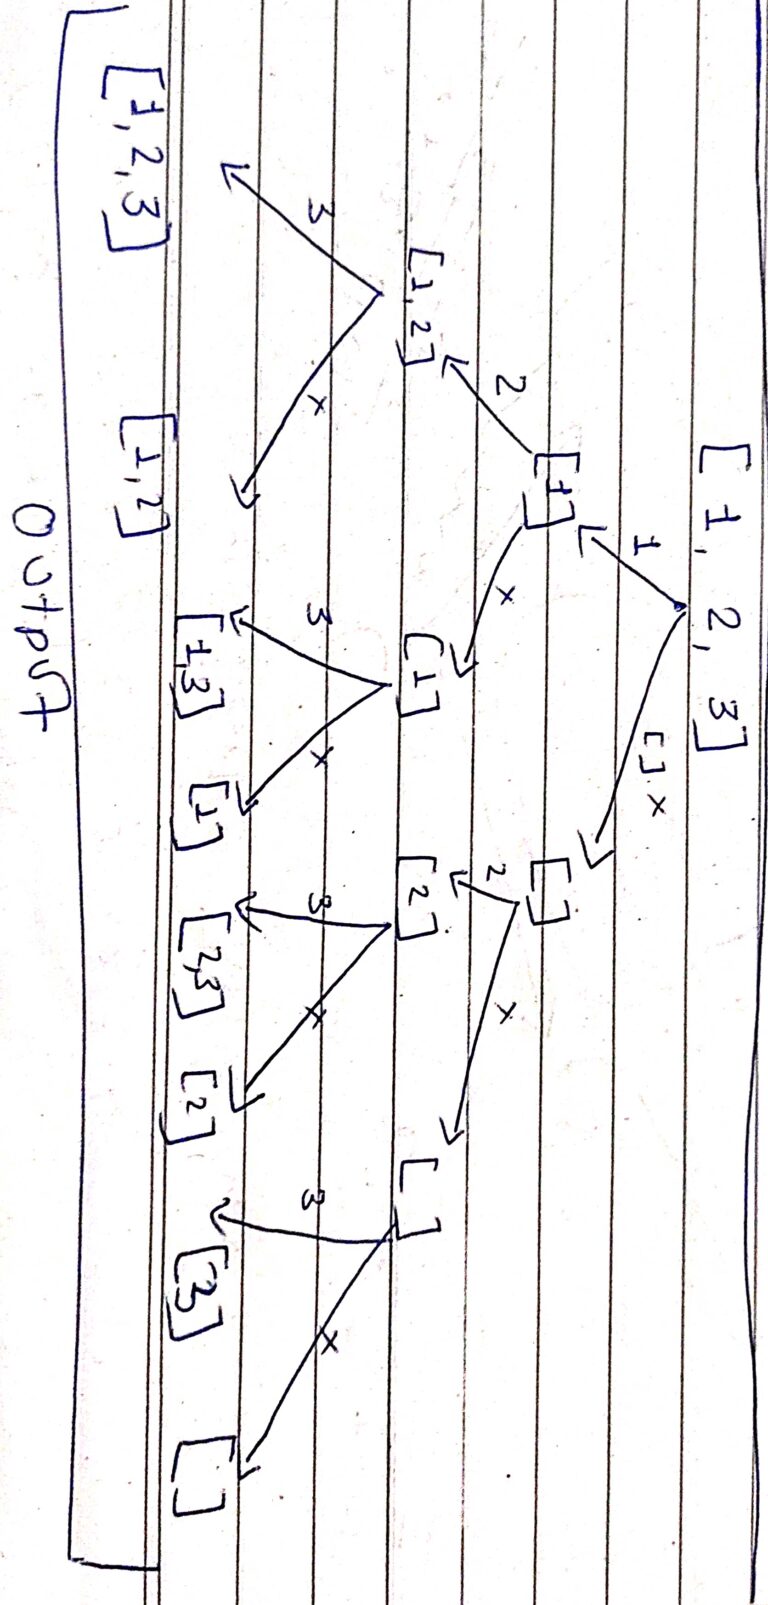 [1, 2, 3]
1 [] x
[1] []
2 x 2 x
[1,2] [1] [2] []
3 x 3 x 3 x 3 x
[1,2,3] [1,2] [1,3] [1] [2,3] [2] [3] []
Output